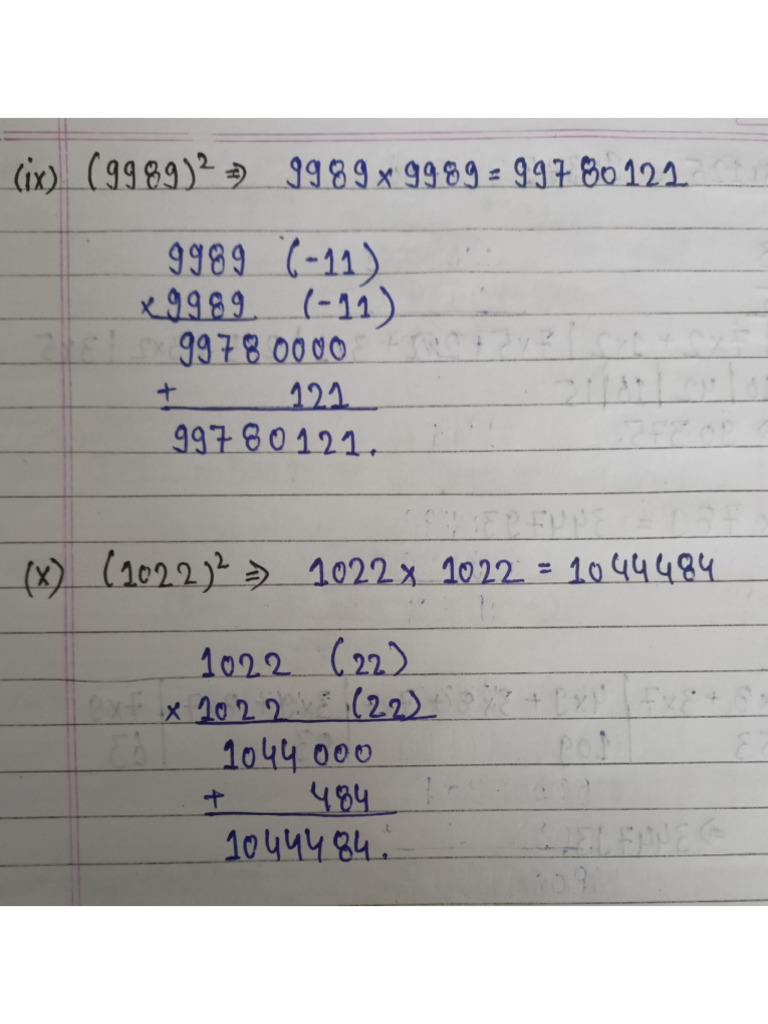 (ix) (9989)² ⇒ 9989 × 9989 = 99780121
9989 (-11)
×9989 (-11)
99780000
+ 121
99780121.
(x) (1022)² ⇒ 1022 × 1022 = 1044484
1022 (22)
×1022 (22)
1044000
+ 484
1044484.